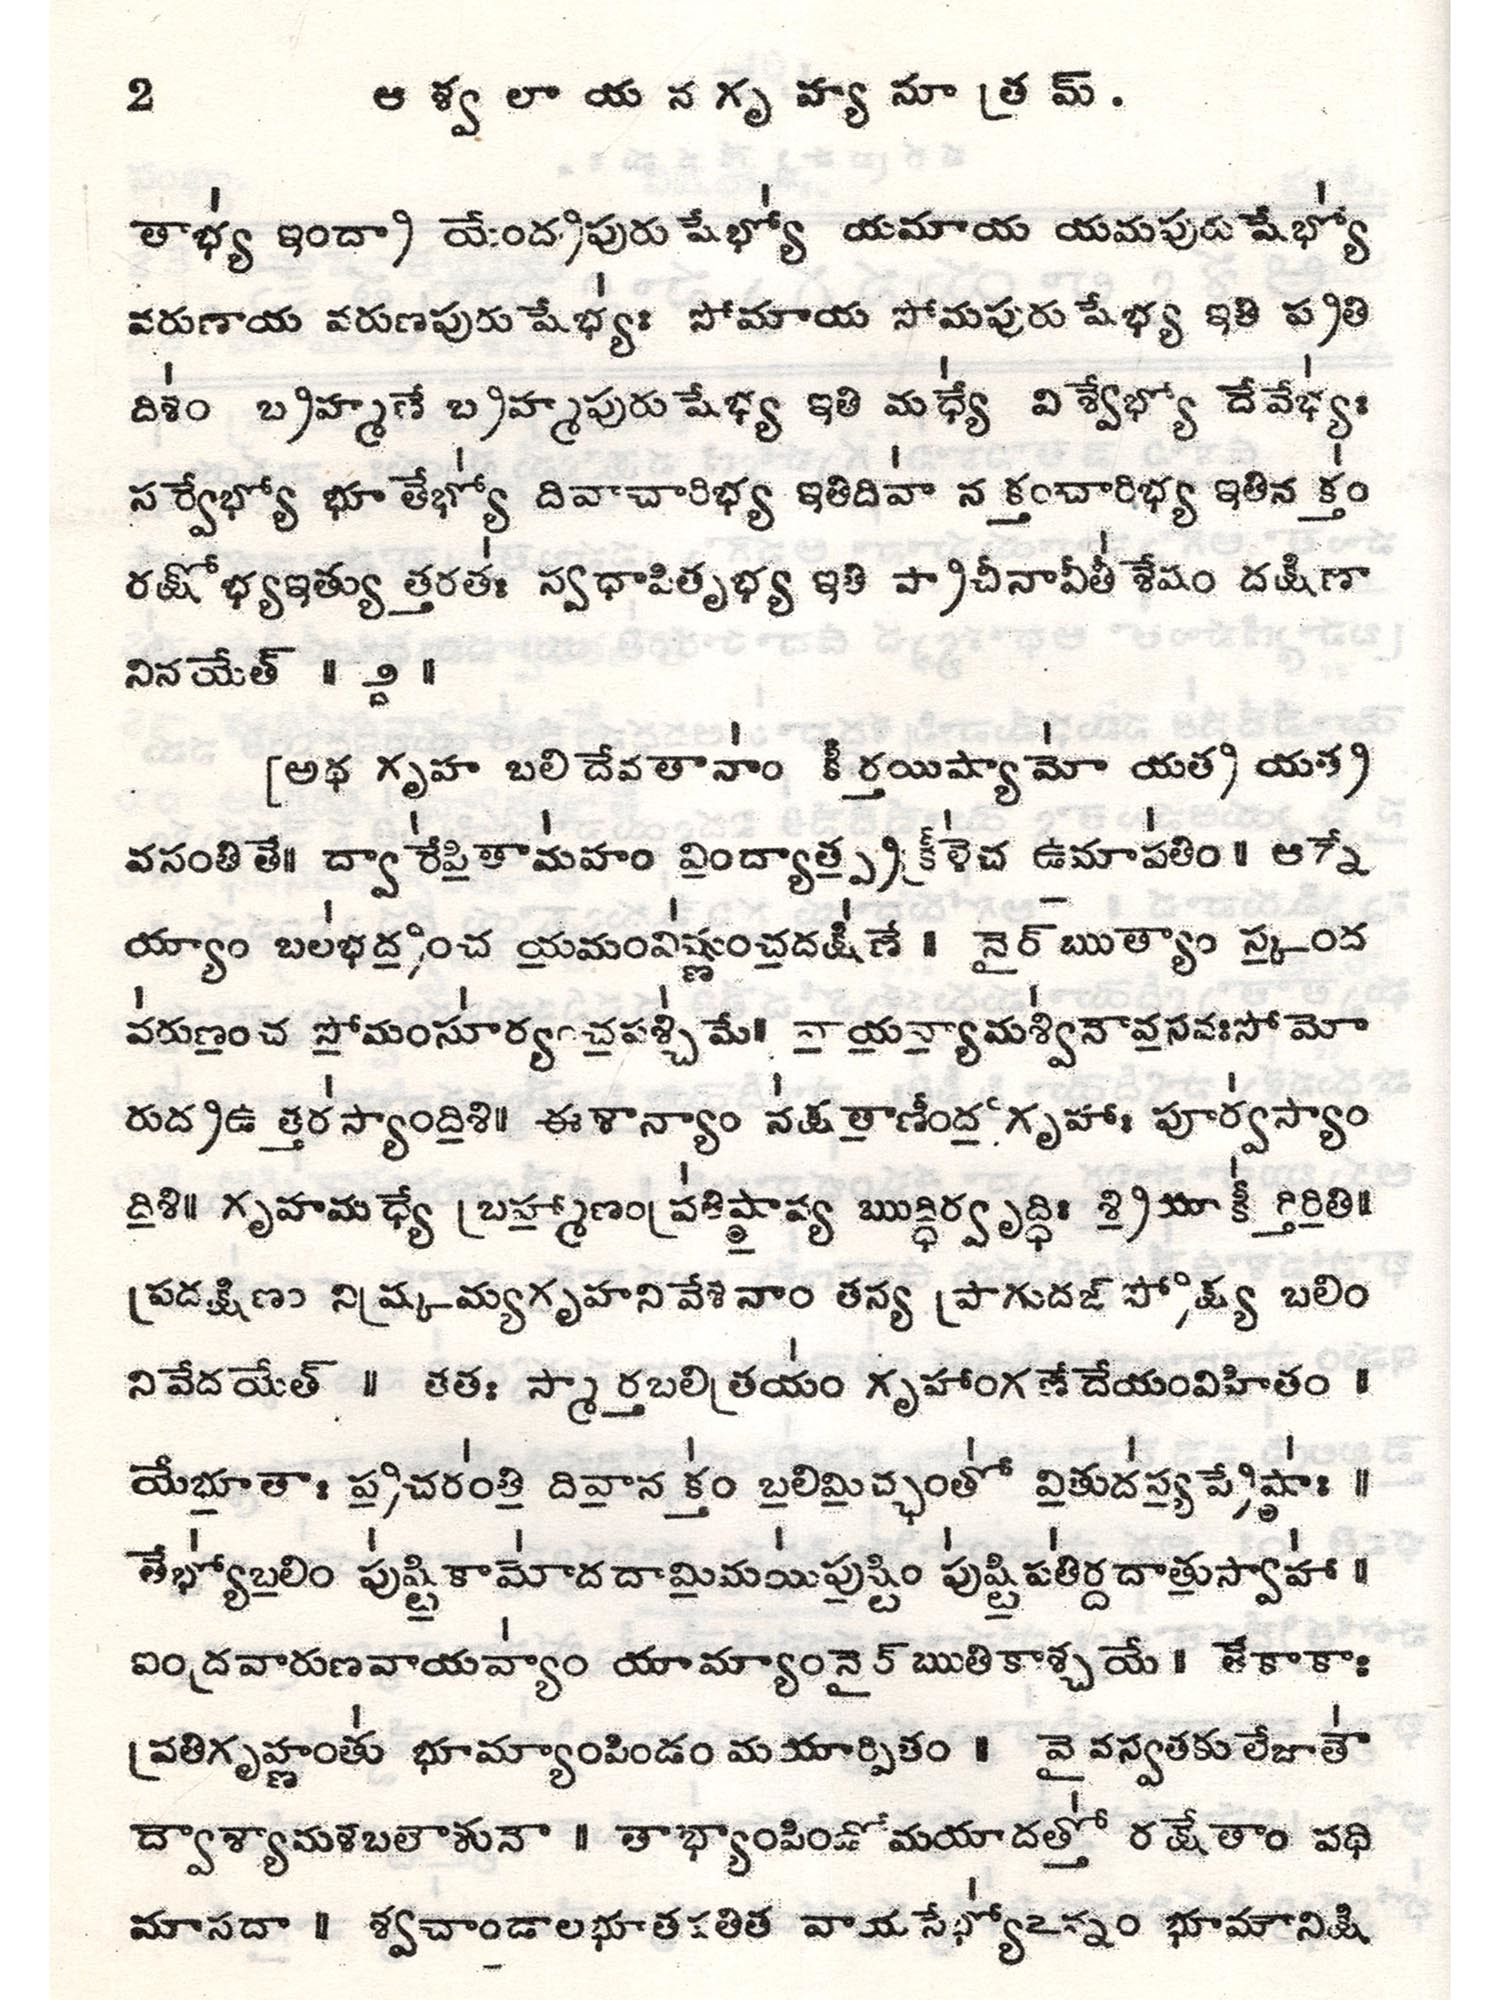 2 ఆశ్వలాయనగృహ్యసూత్రమ్.
తాభ్య॑ ఇంద్రా యేంద్రపురుషేభ్యో॑ యమాయ యమపురుషేభ్యో॑
వరుణాయ వరుణపురుషేభ్యః॑ సోమాయ సోమపురుషేభ్య ఇతి ప్రతి
దిశం॑ బ్రహ్మణే బ్రహ్మపురుషేభ్య ఇతి మధ్యే॑ విశ్వేభ్యో దేవేభ్యః॑
సర్వేభ్యో భూతేభ్యో॑ దివాచారిభ్య ఇతిదివా॑ నక్తంచారిభ్య ఇతినక్తం॑
రక్షోభ్యఇత్యుత్తరతః॑ స్వధాపితృభ్య ఇతి ప్రాచీనావీతీ॑ శేషం దక్షిణా
నినయేత్ ॥ ౨ ॥
[అథ గృహ బలిదేవతానాం॑ కీర్తయిష్యామో॑ యత్ర యత్ర
వసంతి తే॥ ద్వారే॑పి॒తామ॑హం వి॒ంద్యాత్ప్ర॒క్కీ॑ళేచ ఉ॒మాప॑తిం॥ ఆగ్నే
య్యాం బల॑భద్ర॒ంచ య॒మంవి॑ష్ణుంచ॒దక్షి॑ణే ॥ నైర్ఋత్యాం స్క॒ంద
వ॑రుణ॒ంచ సో॒మంసూ॑ర్యంచ॒పశ్చి॑మే॥ వా॒య॒వ్యా॒మశ్వి॑నావ॒సవఃసోమో
రుద్రఉత్తర॑స్యాంది॒శి॥ ఈశాన్యాం న॑క్షత్రా॒ణీంద్ర॒గృహాః పూర్వ॑స్యాం
ది॒శి॥ గృహమధ్యే బ్రహ్మా॒ణంప్ర॑తిష్ఠా॒ప్య ఋద్ధిర్వృద్ధిః శ్రి॒యాకీ॑ర్తిరి॒తి॥
ప్రదక్షిణం నిష్క్రమ్యగృహనివేశనాం తస్య ప్రాగుదఙ్ ప్రోక్ష్య బలిం
నివేదయేత్ ॥ తతః స్మార్తబలిత్రయం॑ గృహాంగణేదేయంవిహితం ॥
యేభూ॒తాః ప్ర॒చరం॑తి॒ దివా॒నక్తం॑ బ॒లిమి॒చ్ఛంతో॑ వి॒తుద॑స్య॒ప్రేష్ఠాః॑ ॥
తేభ్యో॑బ॒లిం పు॑ష్టి॒కామో॑దదామి॒మయి॑పు॒ష్టిం పు॑ష్టి॒పతి॑ర్దదాతు॒స్వాహా॑ ॥
ఐంద్రవారుణవాయవ్యాం॑ యామ్యాంనైర్ఋతికాశ్చయే॥ తేకాకాః
ప్రతిగృహ్ణంతు॑ భూమ్యాంపిండం మయార్పితం ॥ వైవస్వతకులేజాతౌ॑
ద్వౌశ్యామశబలౌశునౌ ॥ తాభ్యాంపిండోమయాదత్తో॑ రక్షేతాం పథి
మాసదా ॥ శ్వచాండాలభూతపతిత వాయసేభ్యో॑ఽన్నం భూమౌనిక్షి